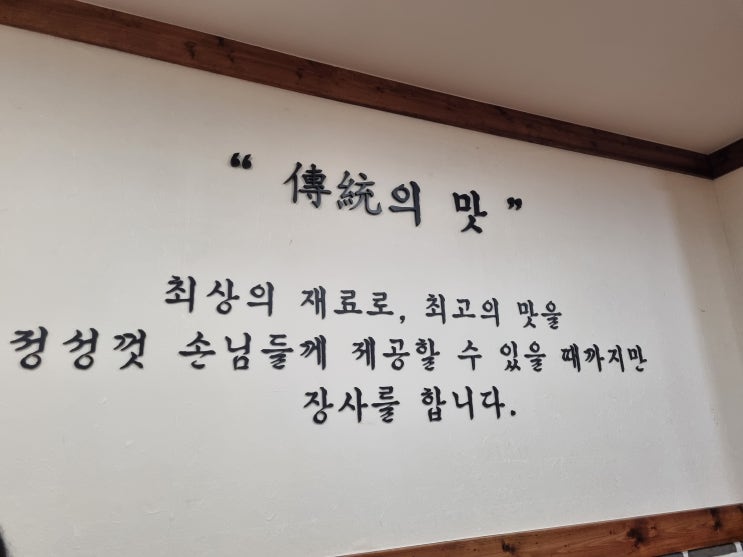 “ 傳統의 맛 ”
최상의 재료로, 최고의 맛을
정성껏 손님들께 제공할 수 있을 때까지만
장사를 합니다.